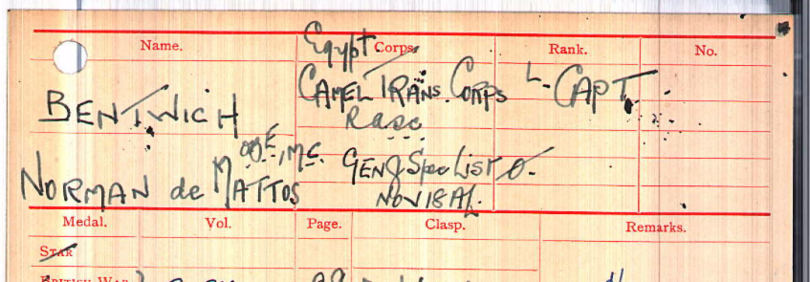 Name. Corps. Rank. No.
Egypt.
CAMEL TRANS. CORPS L-CAPT.
BENTWICH
RASC
OBE, MC. GEN & Spec LIST
NORMAN de MATTOS
NOV 18 AL.
Medal. Vol. Page. Clasp. Remarks.
STAR
BRITISH WAR